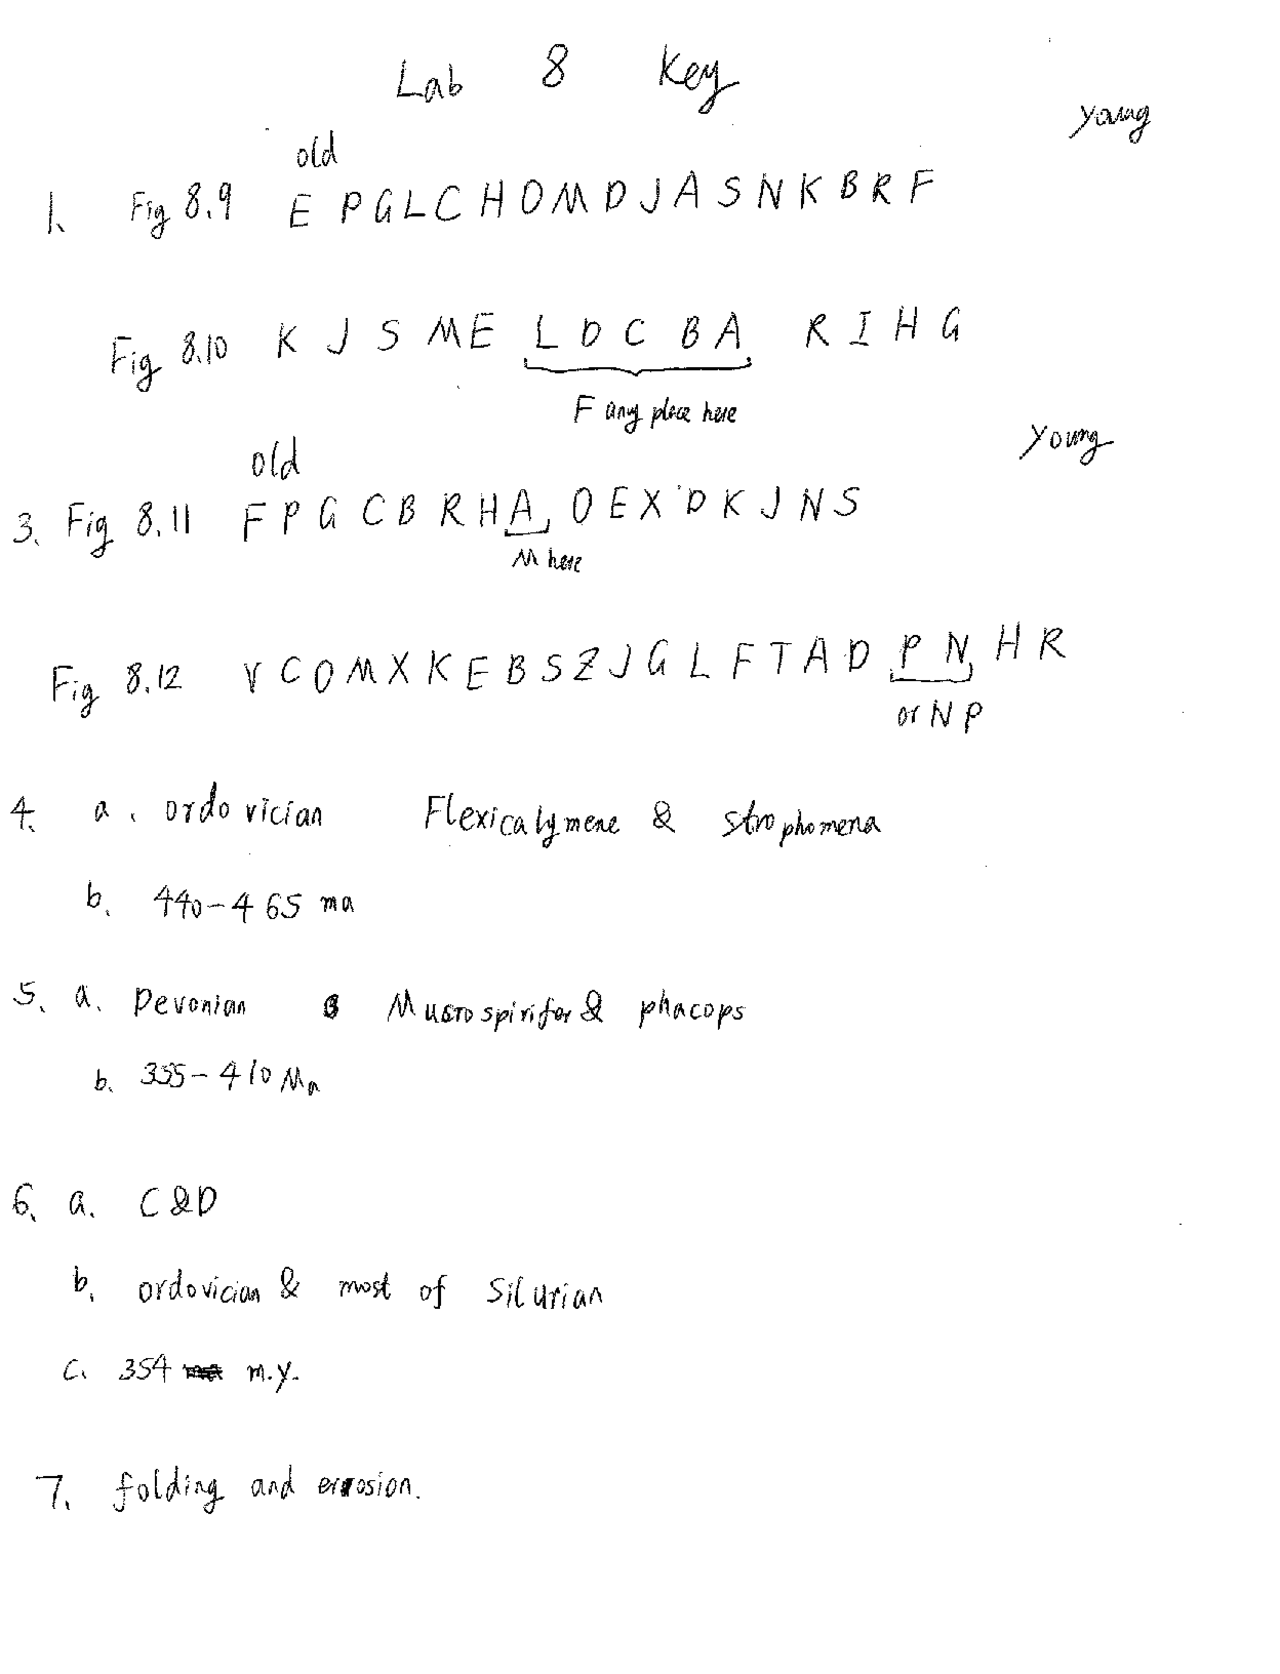 Lab 8 Key
old young
1. Fig 8.9 E P G L C H O M D J A S N K B R F
Fig 8.10 K J S M E L D C B A R I H G
F any place here
old young
3. Fig 8.11 F P G C B R H A, O E X D K J N S
M here
Fig 8.12 Y C O M X K E B S Z J G L F T A D P N, H R
or N P
4. a. ordovician Flexicalymene & strophomena
b. 440-465 ma
5. a. Devonian Mucrospirifer & phacops
b. 355-410 Ma
6. a. C & D
b. ordovician & most of Silurian
c. 354 m.y.
7. folding and errosion.